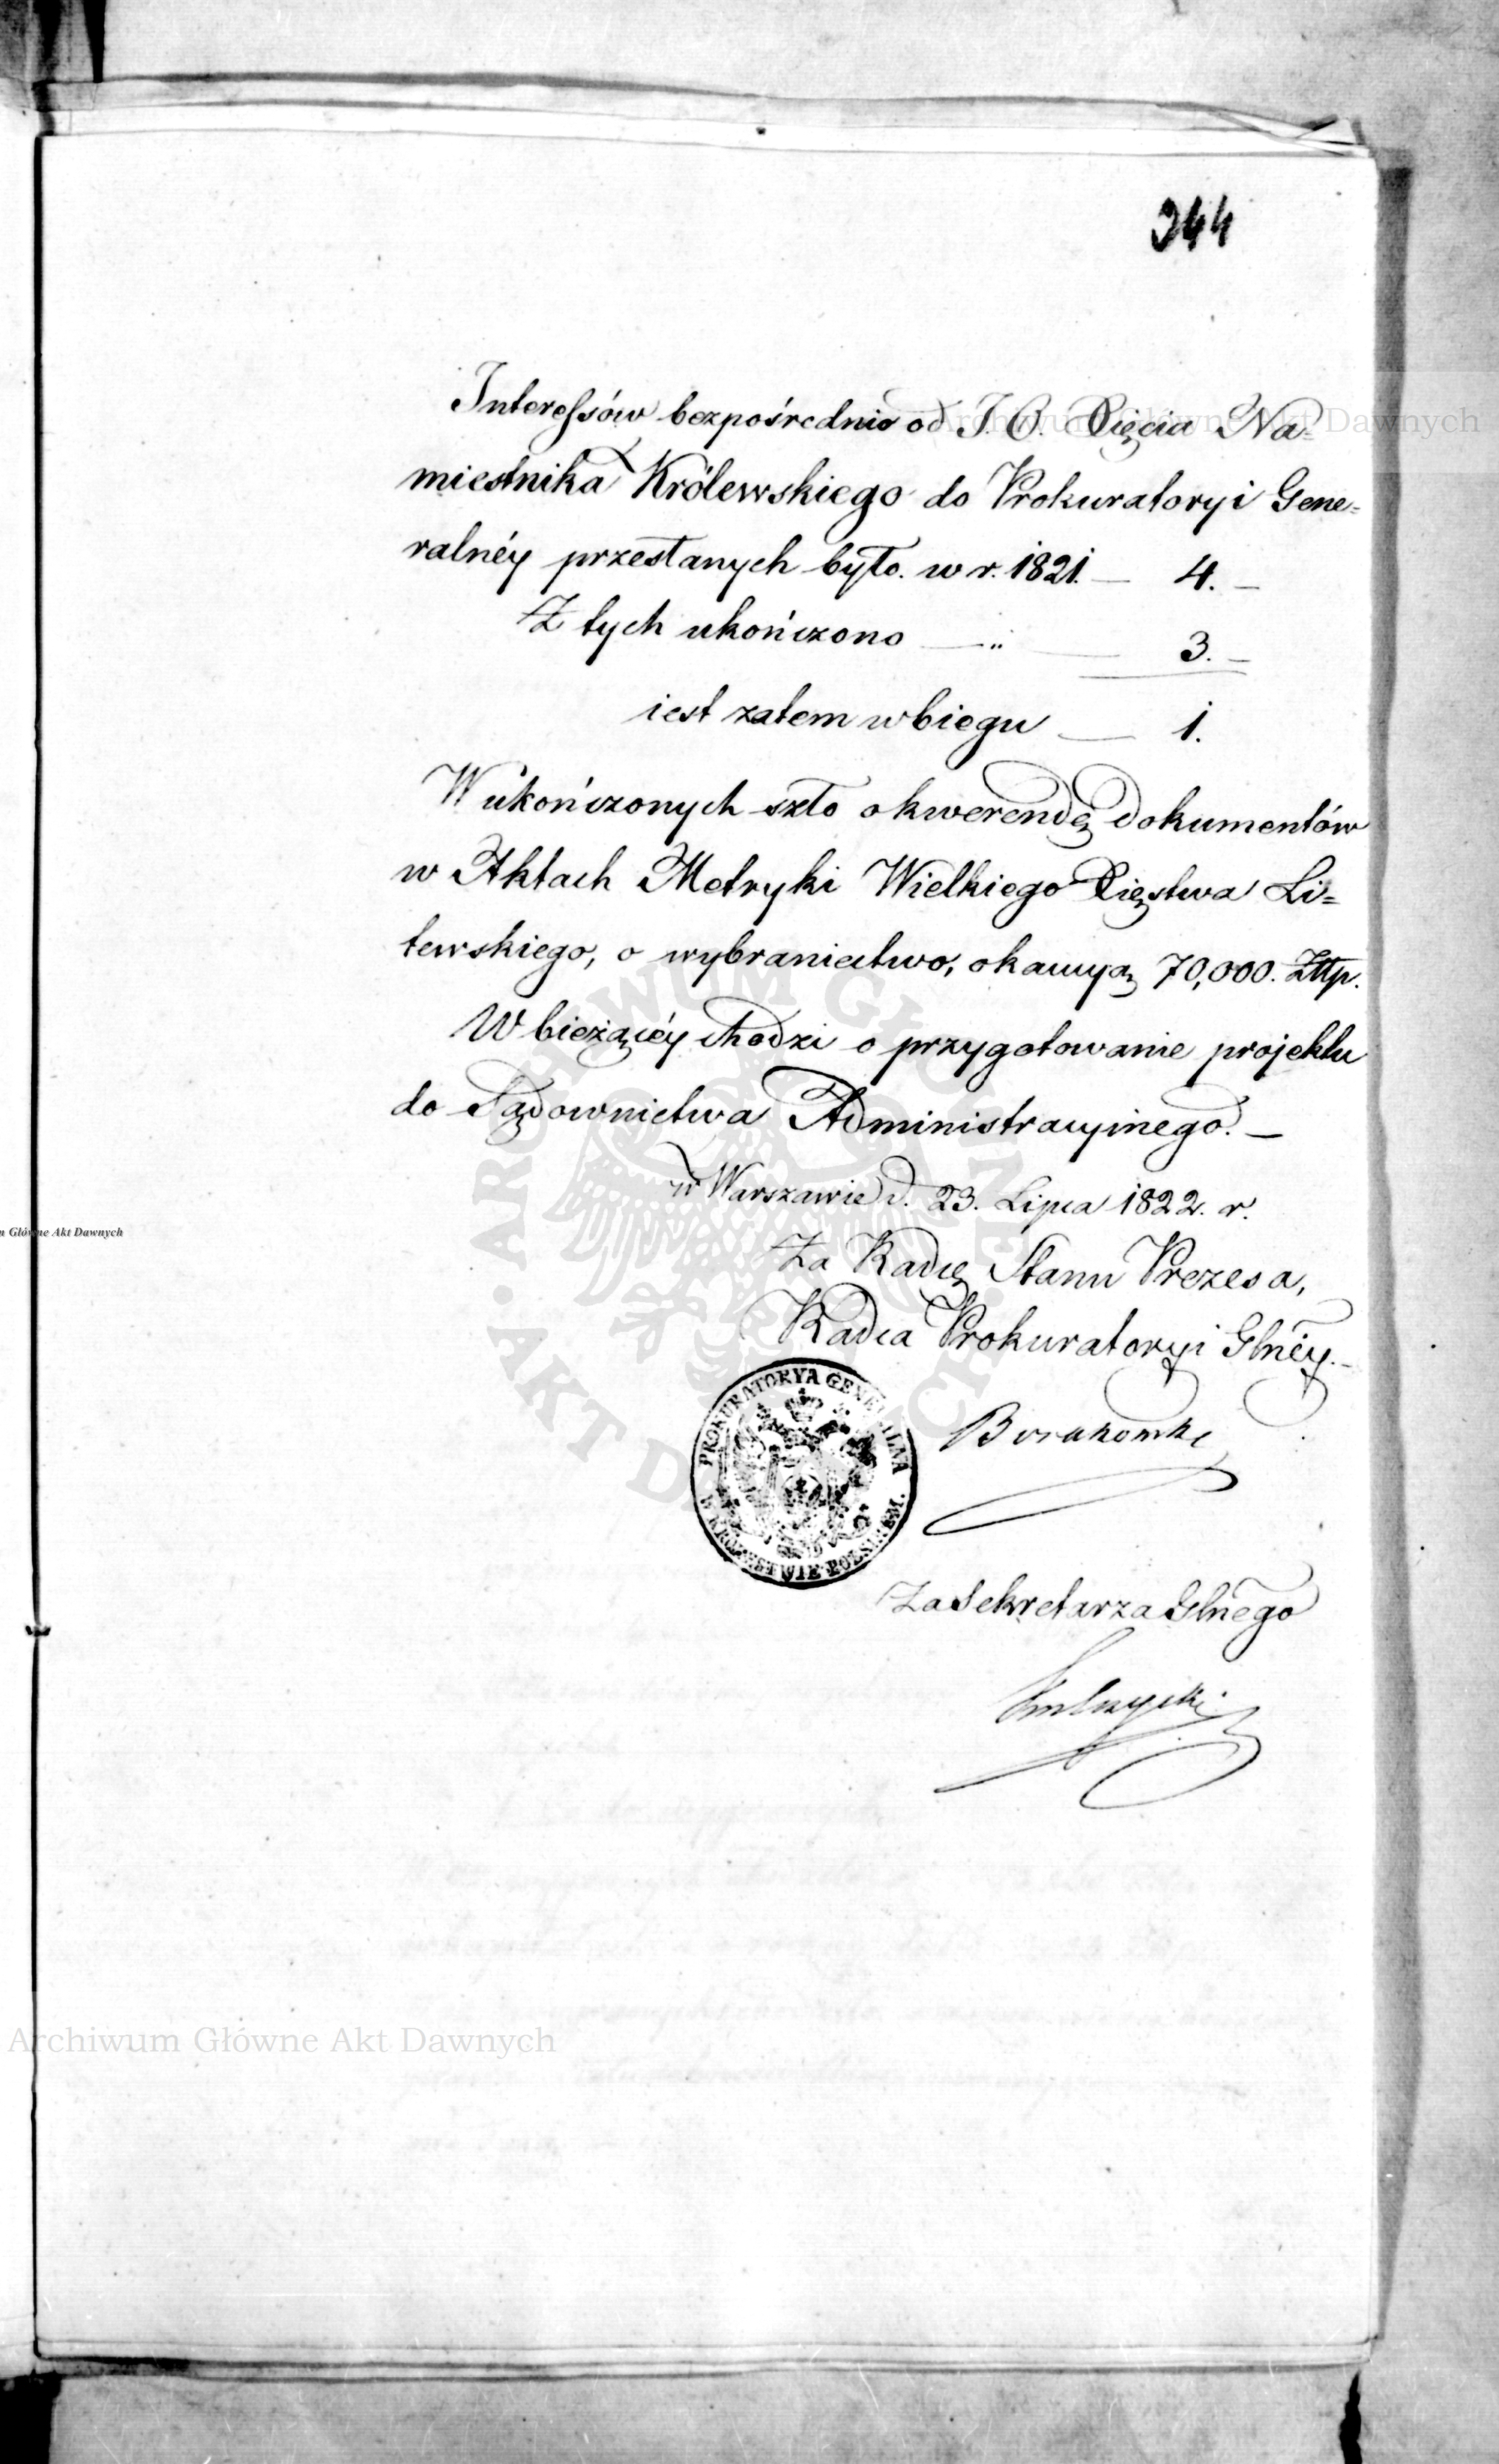 344
Interessów bezpośrednio od J. O. Xięcia Na=
miestnika Królewskiego do Prokuratoryi Gene=
ralnéy przesłanych było. w r. 1821. — 4. —
Z tych ukończono — „ — 3. —
iest zatem w biegu — 1.
W ukończonych szło o kwerendę dokumentów
w Aktach Metryki Wielkiego Xięstwa Li=
tewskiego, o wybraniectwo, o kaucyą 70,000. Złtp.
W bieżącéy chodzi o przygotowanie projektu
do Sądownictwa Administracyinego. —
w Warszawie d. 23. Lipca 1822. r.
Za Radcę Stanu Prezesa,
Radca Prokuratoryi Glnéy. —
PROKURATORYA GENERALNA
W KROLESTWIE POLSKIEM.
Za Sekretarza Glnego
Archiwum Główne Akt Dawnych
m Główne Akt Dawnych
ARCHIWUM GŁÓWNE • AKT DAWNYCH •
Archiwum Główne Akt Dawnych